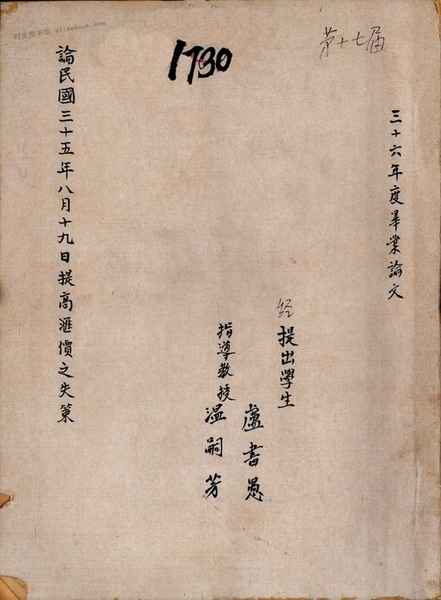 1730
第十七届
三十六年度畢業論文
经
提出學生
盧書愚
指導教授
溫嗣芳
論民國三十五年八月十九日提高滙價之失策